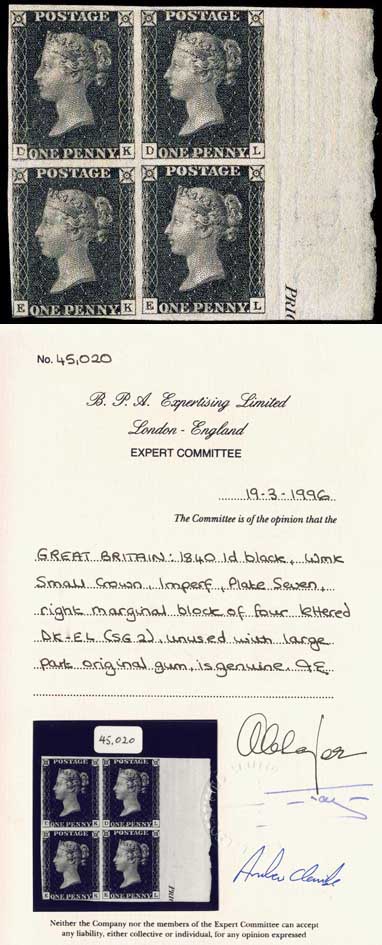 POSTAGE POSTAGE
D ONE PENNY. K D ONE PENNY. L
POSTAGE POSTAGE
E ONE PENNY. K E ONE PENNY. L
PRIC
No. 45,020
B. P. A. Expertising Limited
London - England
EXPERT COMMITTEE
19-3-1996
The Committee is of the opinion that the
GREAT BRITAIN: 1840 1d black, Wmk
Small Crown, Imperf, Plate Seven,
right marginal block of four lettered
DK-EL (SG 2), unused with large
part original gum, is genuine.
45,020
POSTAGE POSTAGE
D ONE PENNY. K D ONE PENNY. L
POSTAGE POSTAGE
E ONE PENNY. K E ONE PENNY. L
PRIC
Neither the Company nor the members of the Expert Committee can accept
any liability, either collective or individual, for any opinion expressed